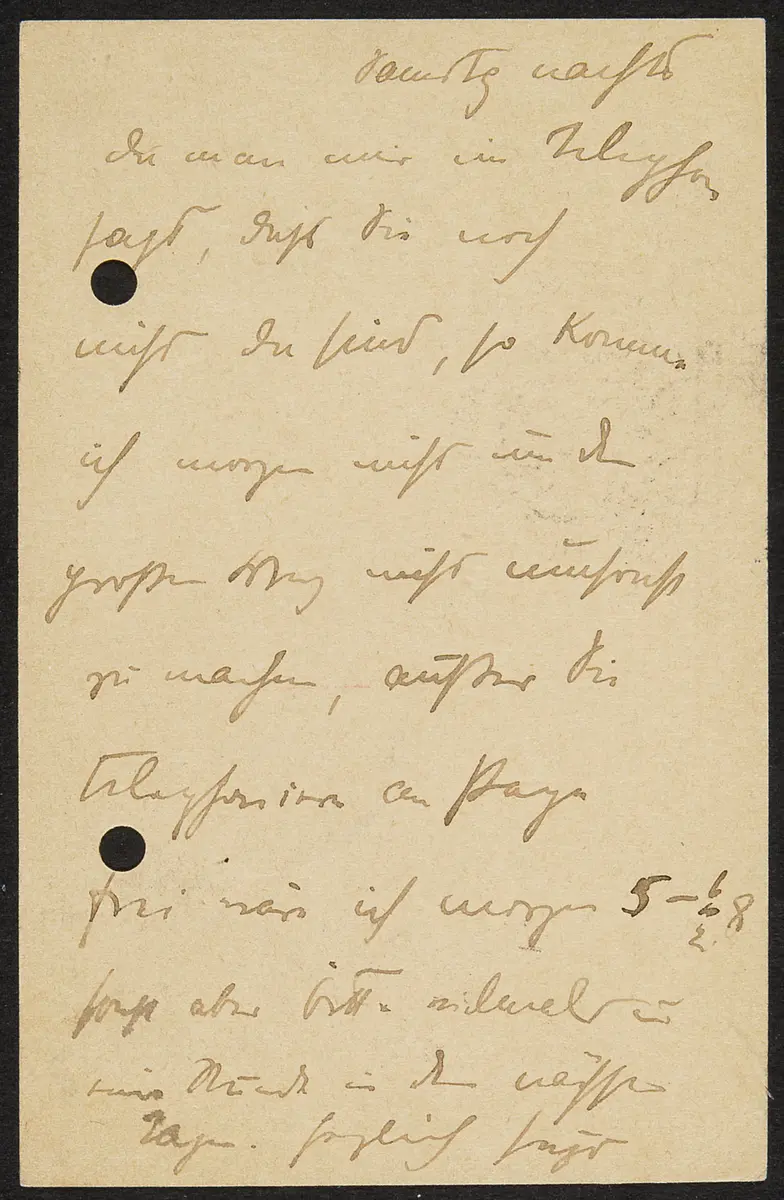 Samstg nachts
da man mir im Telephon
sagt, dass Sie noch
nicht da sind, so komme
ich morgen nicht um den
großen Weg nicht umsonst
zu machen, außer Sie
telephoniren an
frei wäre ich morgen 5 – ½ 8
sonst aber bitte vielmals um
eine Stunde in den nächsten
Tagen. herzlich Hugo